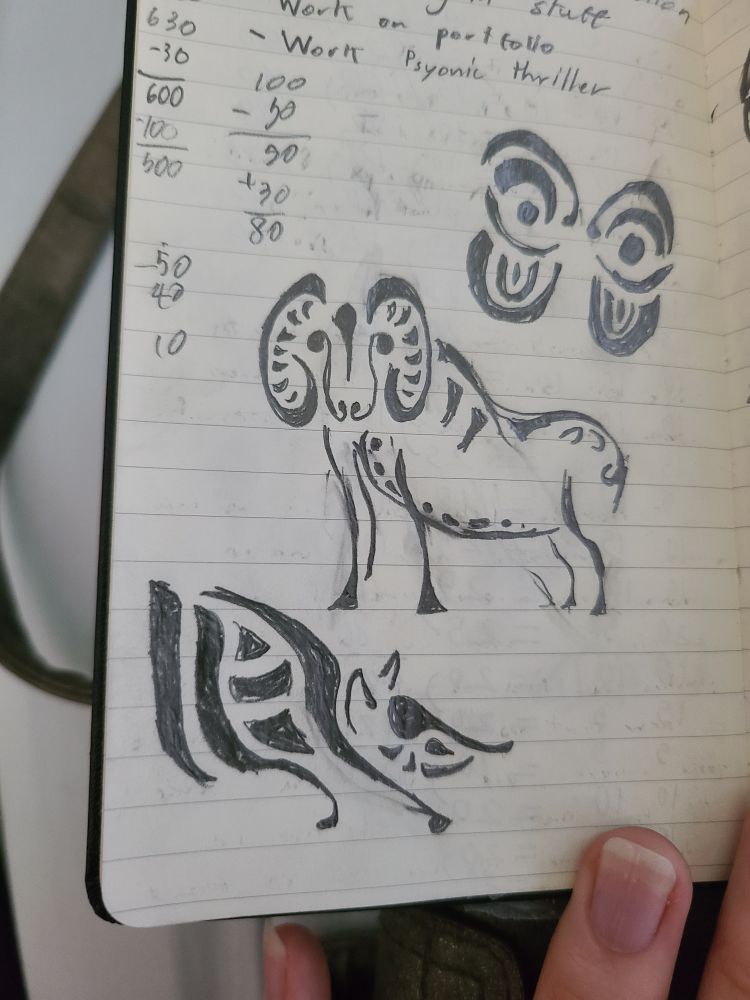 stuff
- Work on portfolio
- Work Psyonic thriller
630
-30
600
-100
500
-50
40
10
100
- 50
50
+30
80